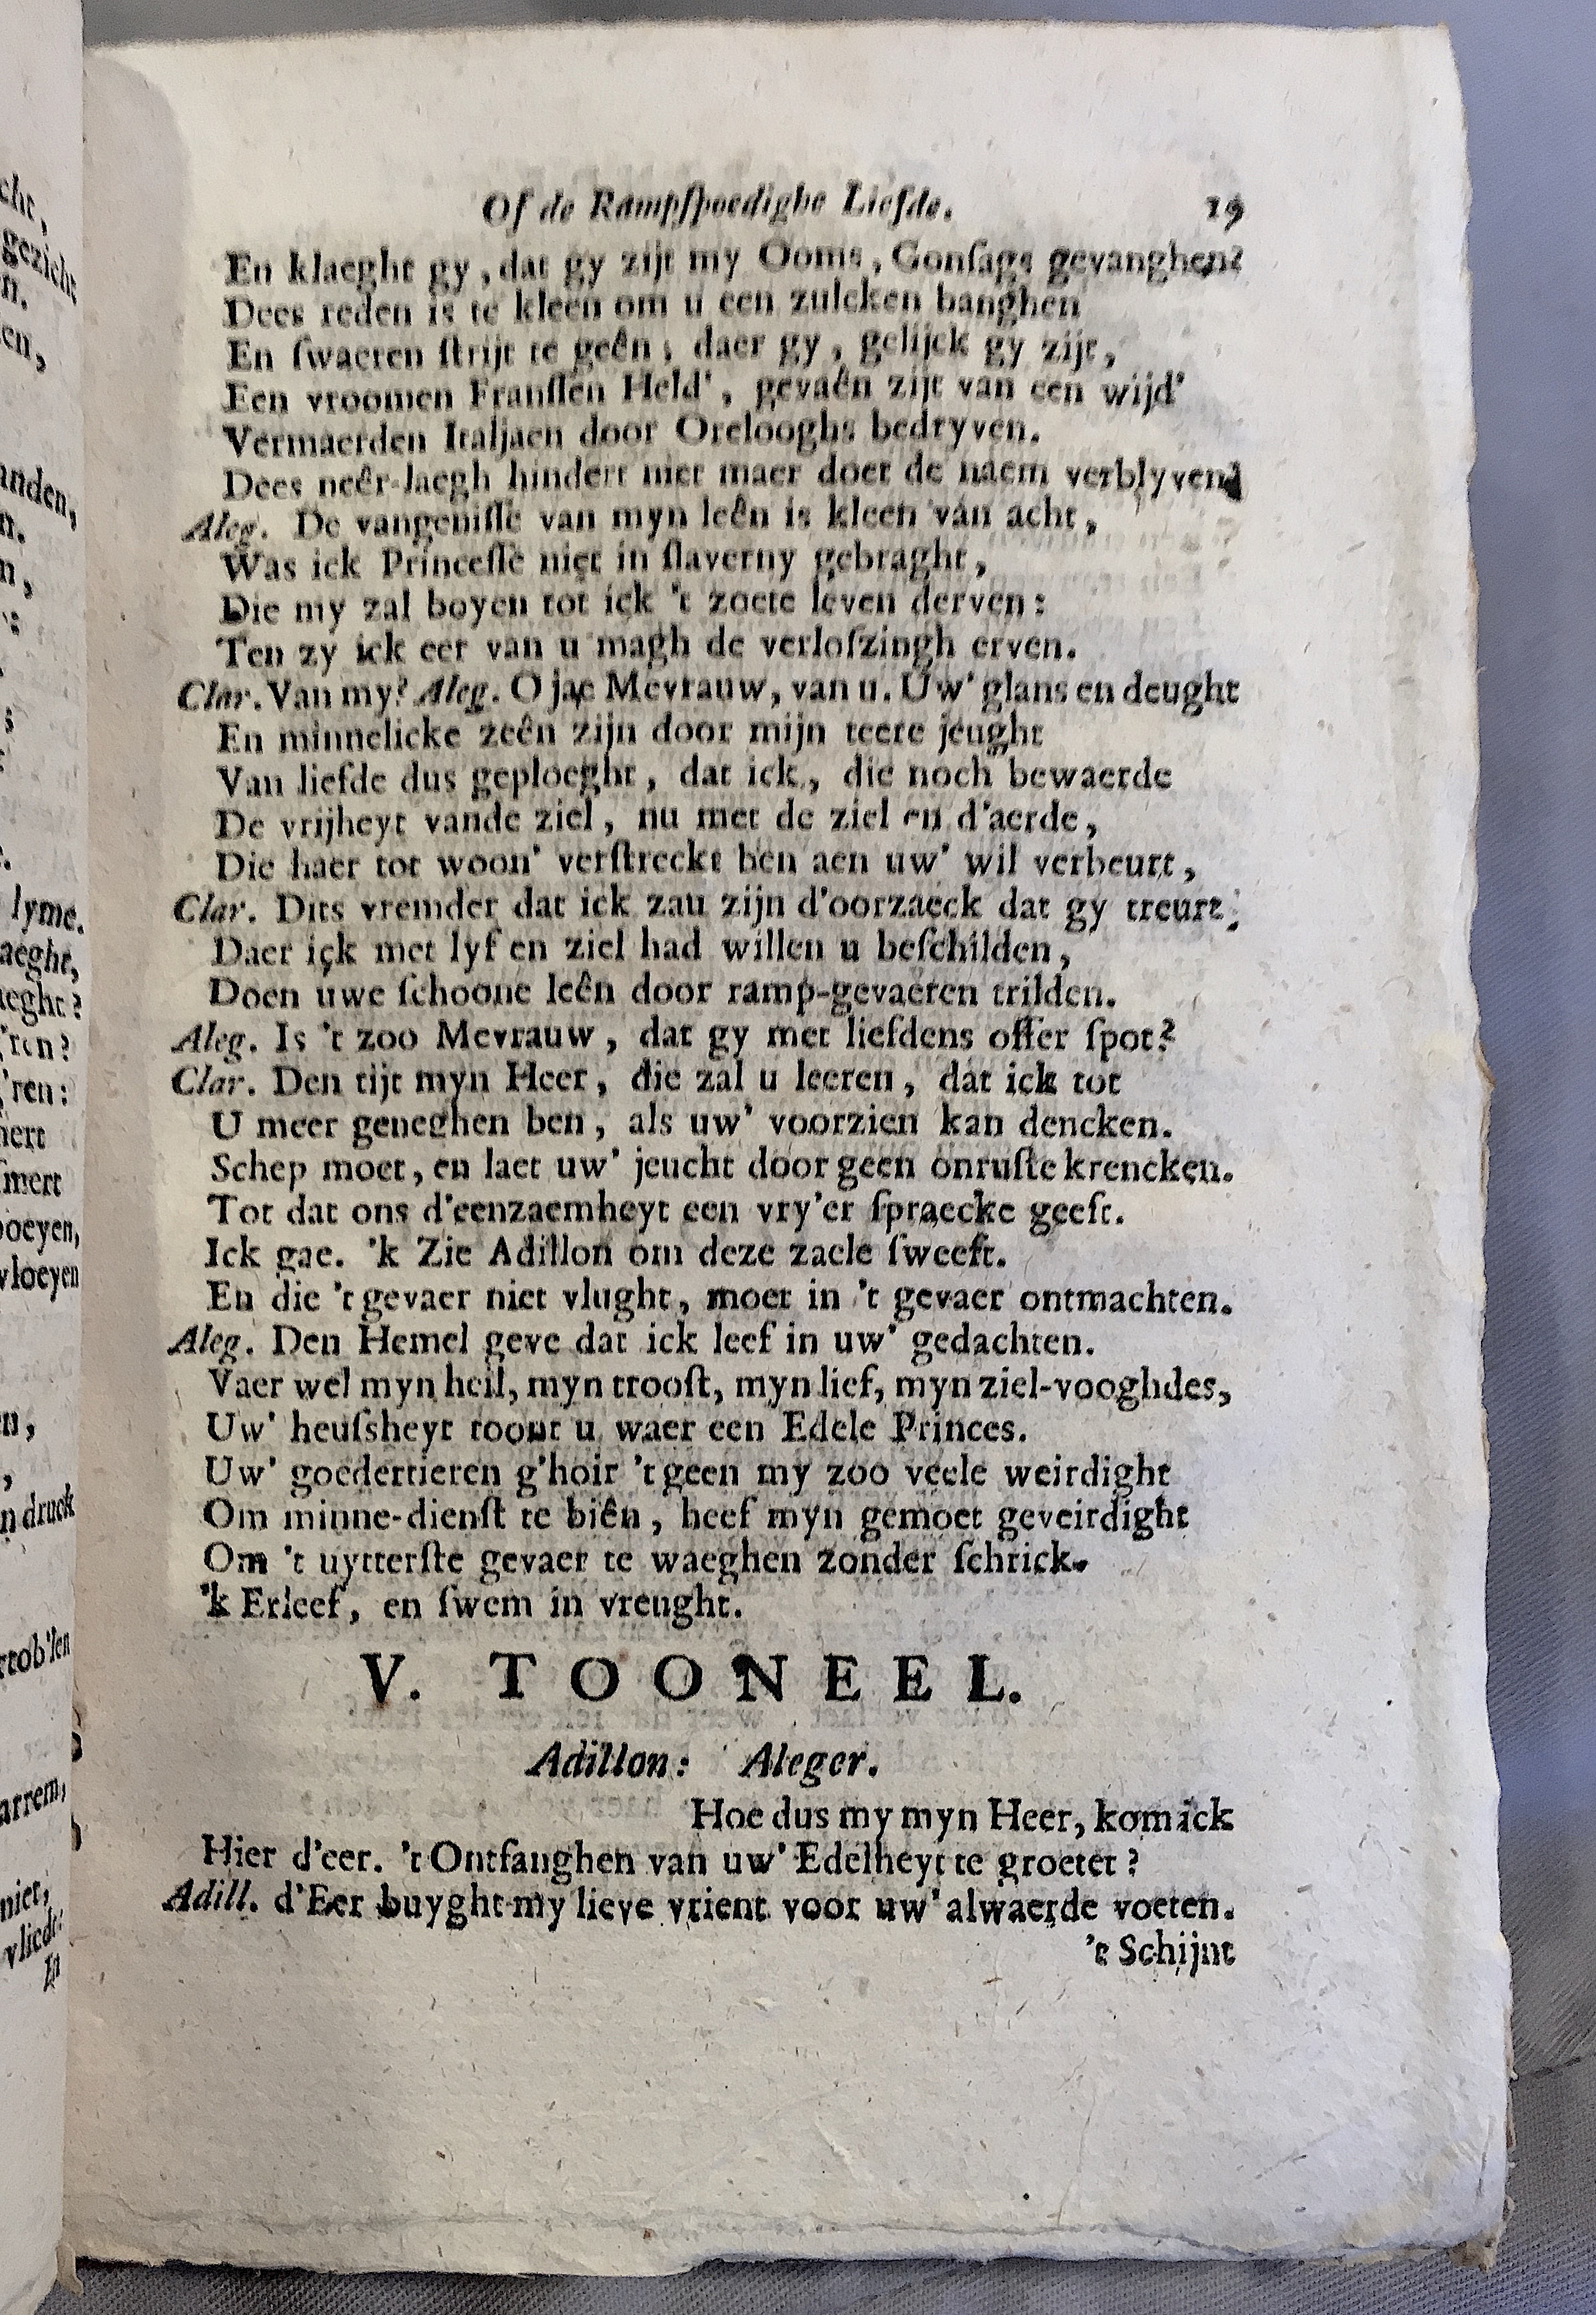 Of de Rampſpoedighe Liefde. 19
En klaeght gy, dat gy zijt my Ooms, Gonſags gevanghen?
Dees reden is te kleen om u een zulcken banghen
En ſwaeren ſtrijt te geên; daer gy, gelijck gy zijt,
Een vroomen Franſſen Held', gevaên zijt van een wijd'
Vermaerden Italjaen door Orelooghs bedryven.
Dees neêr-laegh hindert niet maer doet de naem verblyven.
Aleg. De vangeniſſe van myn leên is kleen van acht,
Was ick Princeſſe niet in ſlaverny gebraght,
Die my zal boyen tot ick 't zoete leven derven:
Ten zy ick eer van u magh de verloſzingh erven.
Clar. Van my? Aleg. O jae Mevrauw, van u. Uw' glans en deught
En minnelicke zeên zijn door mijn teere jeught
Van liefde dus geploeght, dat ick, die noch bewaerde
De vrijheyt vande ziel, nu met de ziel en d'aerde,
Die haer tot woon' verſtreckt ben aen uw' wil verbeurt,
Clar. Dits vremder dat ick zau zijn d'oorzaeck dat gy treurt;
Daer ick met lyf en ziel had willen u beſchilden,
Doen uwe ſchoone leên door ramp-gevaeren trilden.
Aleg. Is 't zoo Mevrauw, dat gy met liefdens offer ſpot?
Clar. Den tijt myn Heer, die zal u leeren, dat ick tot
U meer geneghen ben, als uw' voorzien kan dencken.
Schep moet, en laet uw' jeucht door geen onruſte krencken.
Tot dat ons d'eenzaemheyt een vry'er ſpraecke geeft.
Ick gae. 'k Zie Adillon om deze zaele ſweeft.
En die 't gevaer niet vlught, moet in 't gevaer ontmachten.
Aleg. Den Hemel geve dat ick leef in uw' gedachten.
Vaer wel myn heil, myn trooſt, myn lief, myn ziel-vooghdes,
Uw' heuſsheyt toont u waer een Edele Princes.
Uw' goedertieren g'hoir 't geen my zoo veele weirdight
Om minne-dienſt te biên, heef myn gemoet geveirdight
Om 't uytterſte gevaer te waeghen zonder ſchrick.
'k Erleef, en ſwem in vreught.
V. TOONEEL.
Adillon: Aleger.
Hoe dus my myn Heer, kom ick
Hier d'eer. 't Ontfanghen van uw' Edelheyt te groetet?
Adill. d'Eer buyght my lieve vrient voor uw' alwaerde voeten.
't Schijnt